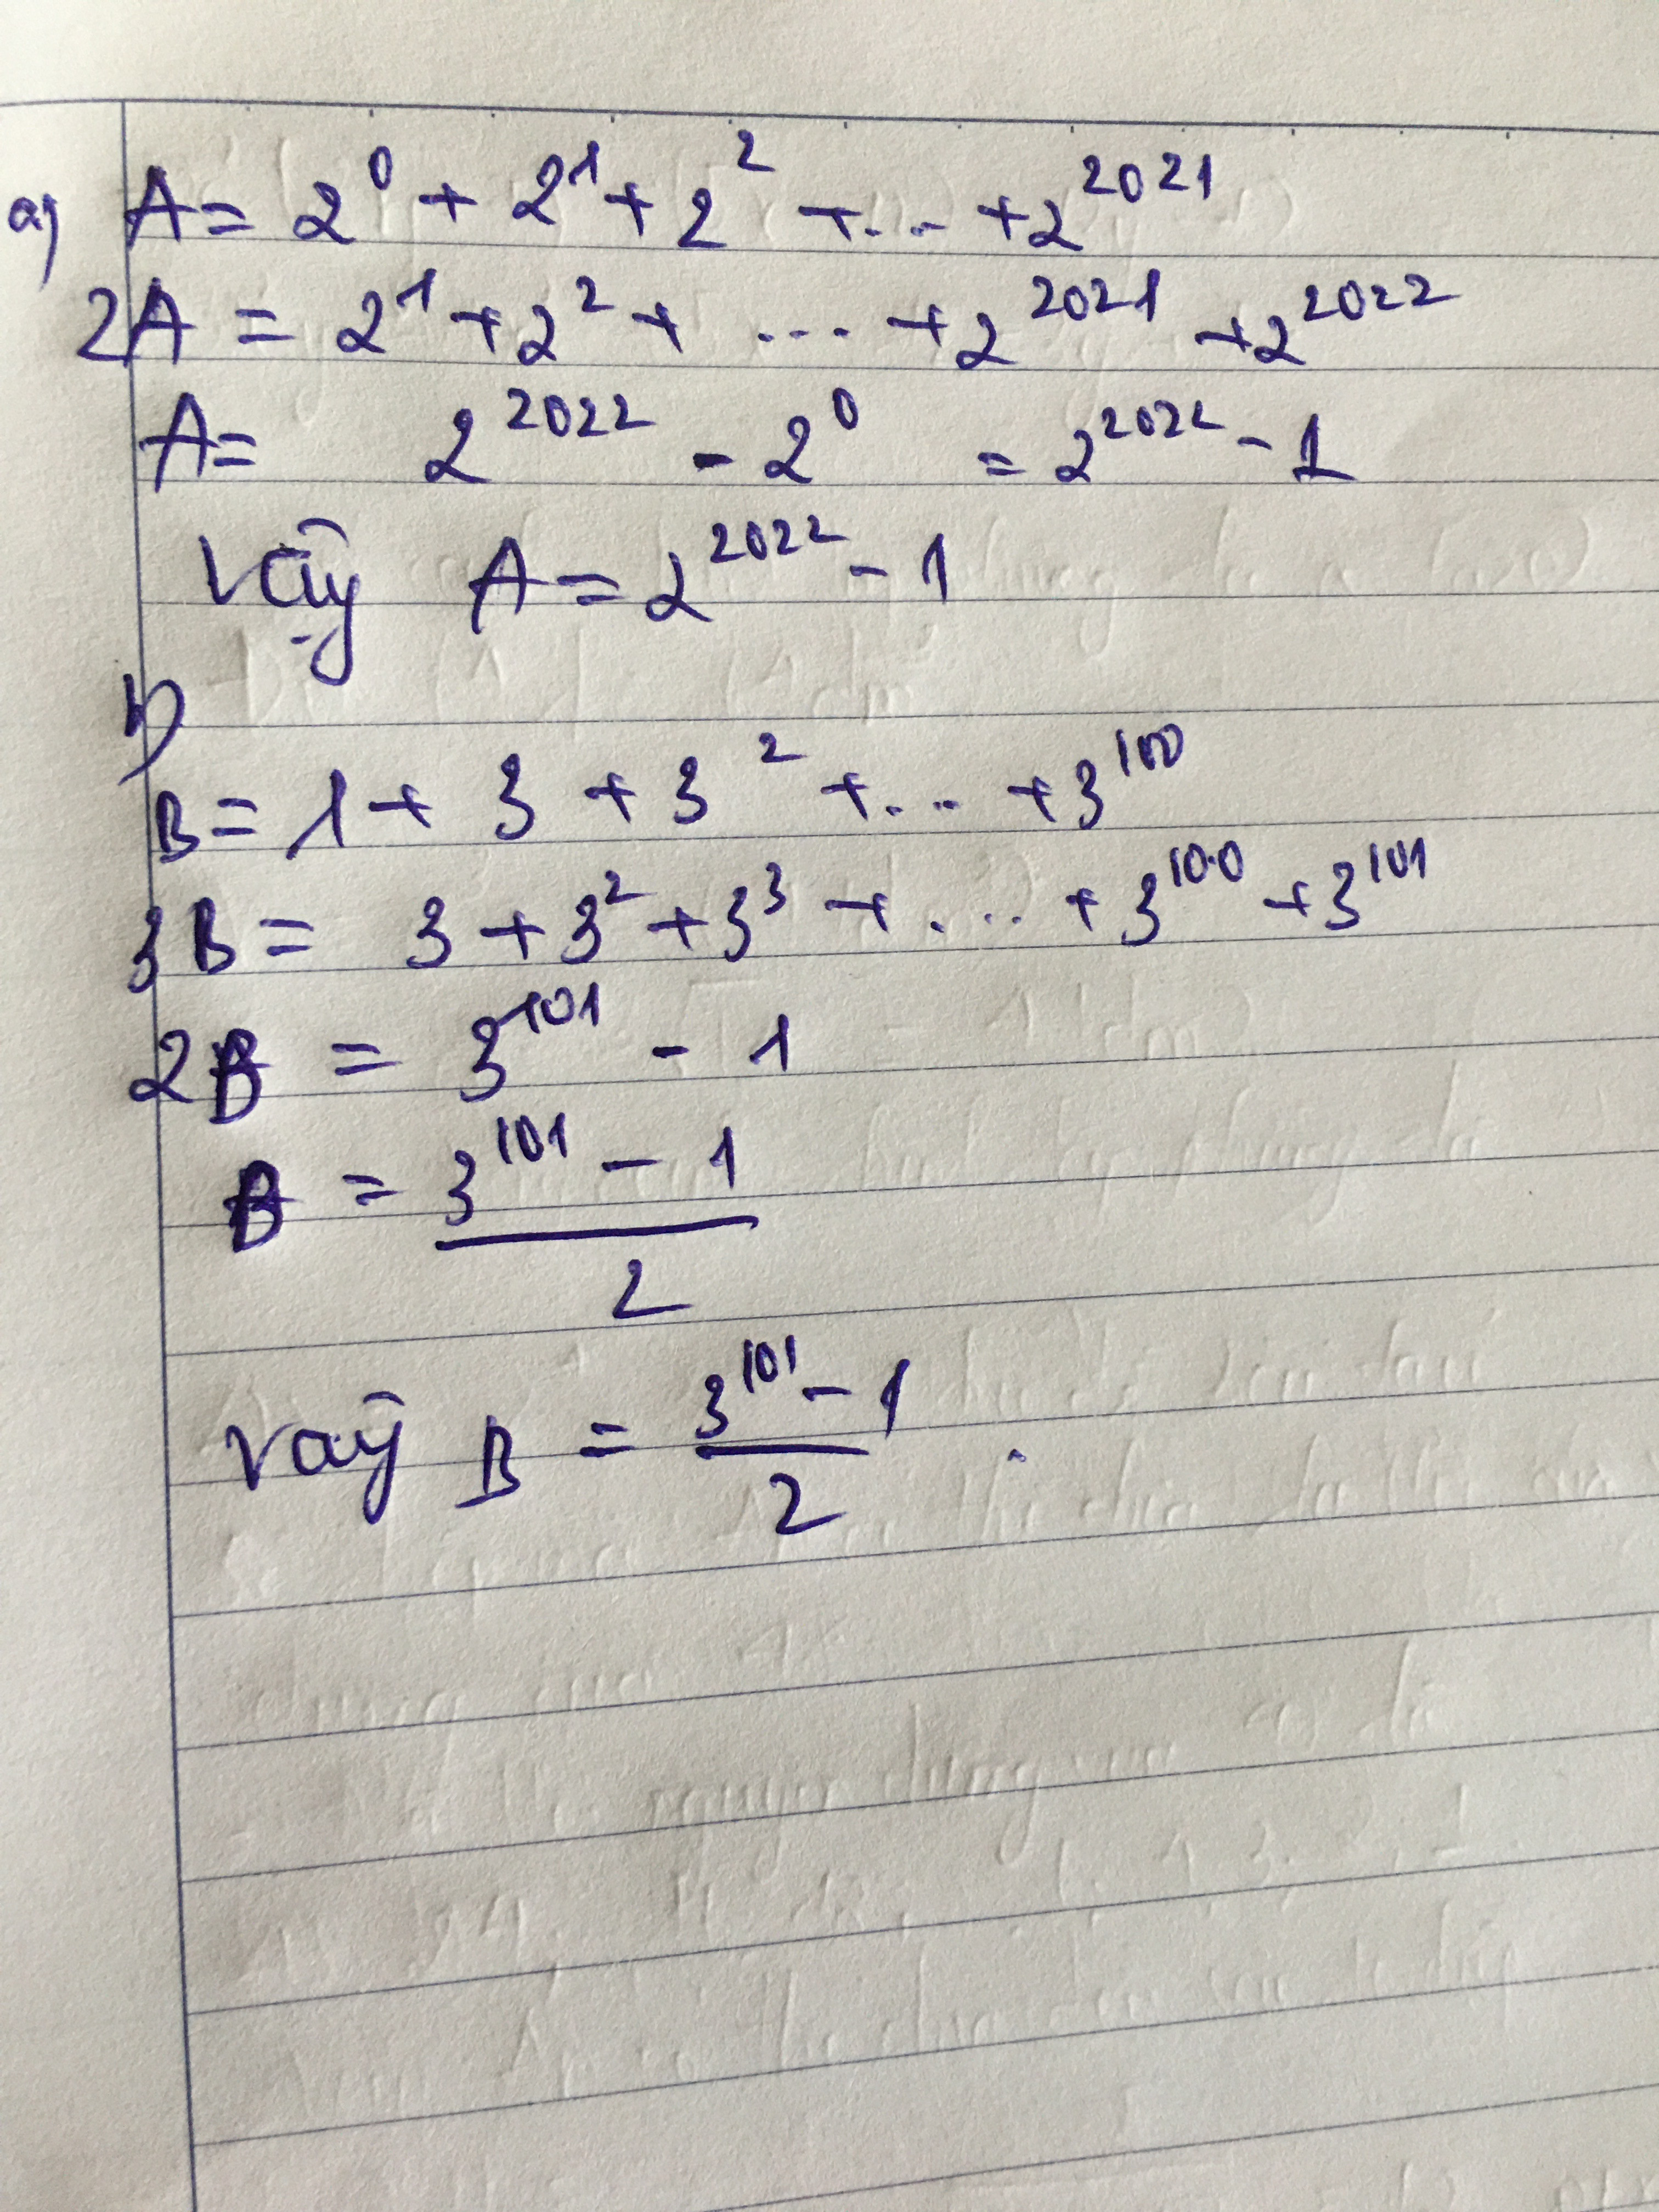 a) A = 2⁰ + 2¹ + 2² + ... + 2²⁰²¹
2A = 2¹ + 2² + ... + 2²⁰²¹ + 2²⁰²²
A = 2²⁰²² - 2⁰ = 2²⁰²² - 1
Vậy A = 2²⁰²² - 1
b)
B = 1 + 3 + 3² + ... + 3¹⁰⁰
3B = 3 + 3² + 3³ + ... + 3¹⁰⁰ + 3¹⁰¹
2B = 3¹⁰¹ - 1
B = (3¹⁰¹ - 1)/2
Vaỹ B = (3¹⁰¹ - 1)/2 .